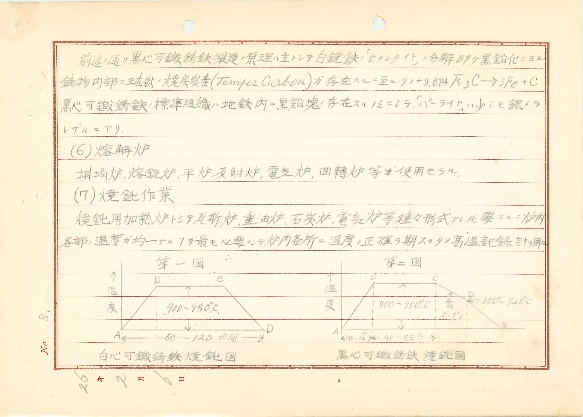 前述ノ通リ黒心可鍛鋳鉄製造ノ原理ハ主トシテ白銑鉄ノ「セメンタイト」ノ分解即チ黒鉛化ニヨル
鋳物内部ニ球状ノ焼戻炭素(Temper Carbon)ガ存在スルニ至ルモノナリ,即チ Fe3C→3Fe+C
黒心可鍛鋳鉄ノ標準組織ハ地鉄内ニ黒鉛塊ノ存在スルノミニシテ「パーライト」ハ少シモ認メラ
レザルニアリ.
(6) 熔解炉
坩堝炉,熔銑炉,平炉,反射炉,電気炉,回轉炉等が使用セラル.
(7) 焼鈍作業
焼鈍用加熱炉トシテ反射炉,重油炉,石炭炉,電気炉等種々形式アルモ要スルニ炉内
各部ノ温度ガ均一ナル
炉内各所ノ温度ノ正確ヲ期スル
高温記録計ヲ用
第一図
↑温度
A B C D
900~950°C
60~120 時間
白心可鍛鋳鉄焼鈍図
第二図
↑温度
A B C D E
650~720°C
黒心可鍛鋳鉄焼鈍図
No. 8.
26年 2月 6日